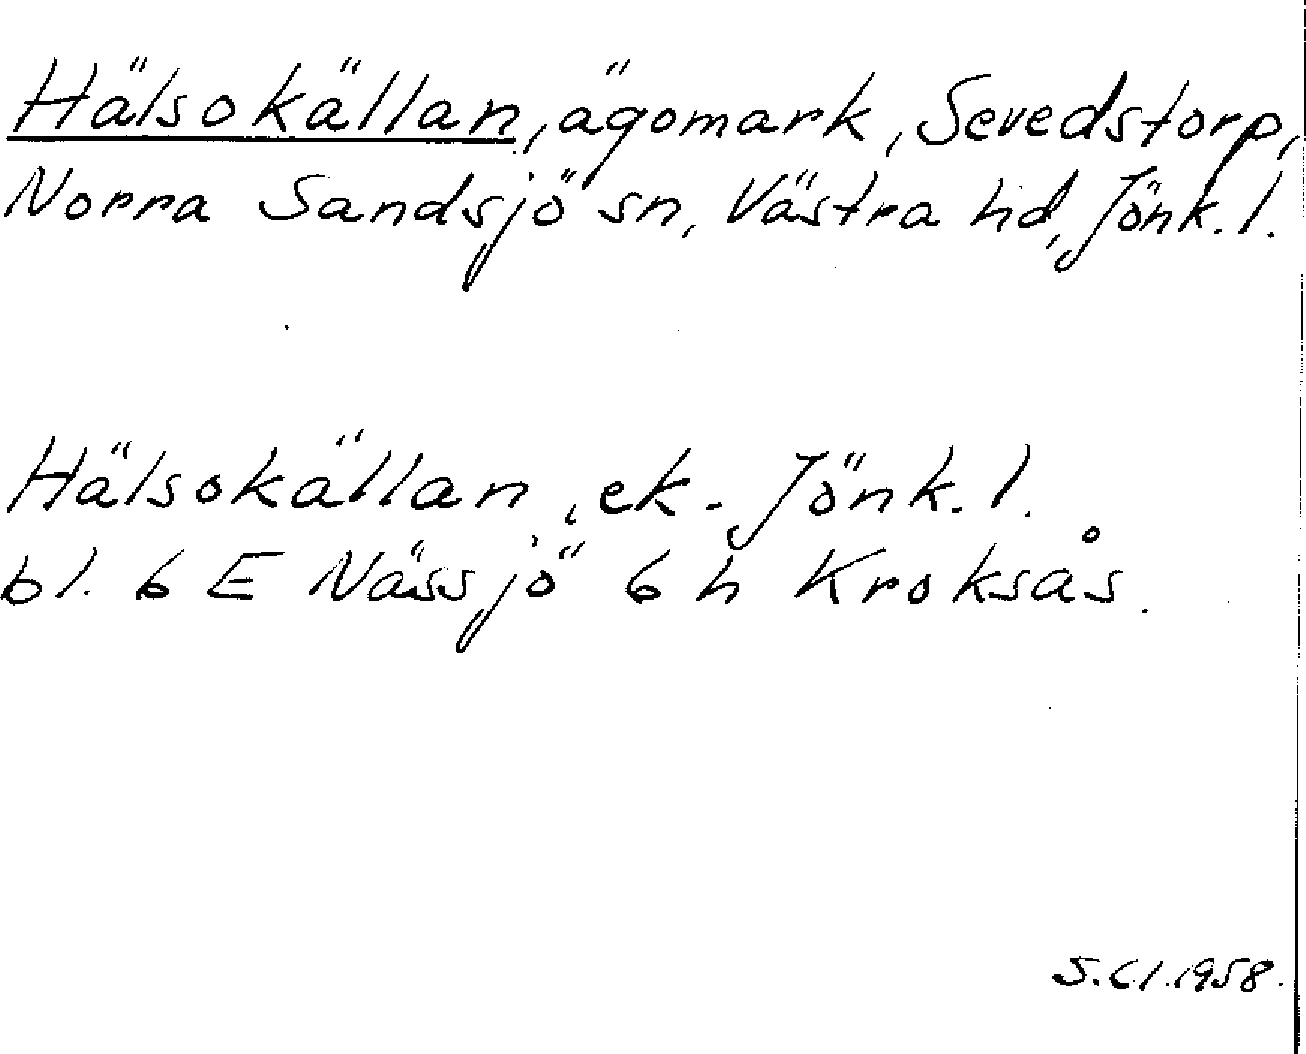 Hälsokällan, ägomark, Sevedstorp,
Norra Sandsjö sn, Västra hd, Jönk. l.
Hälsokällan, ek. Jönk. l.
bl. 6 E Nässjö 6 h Kroksås.
S.C.l. 1958.